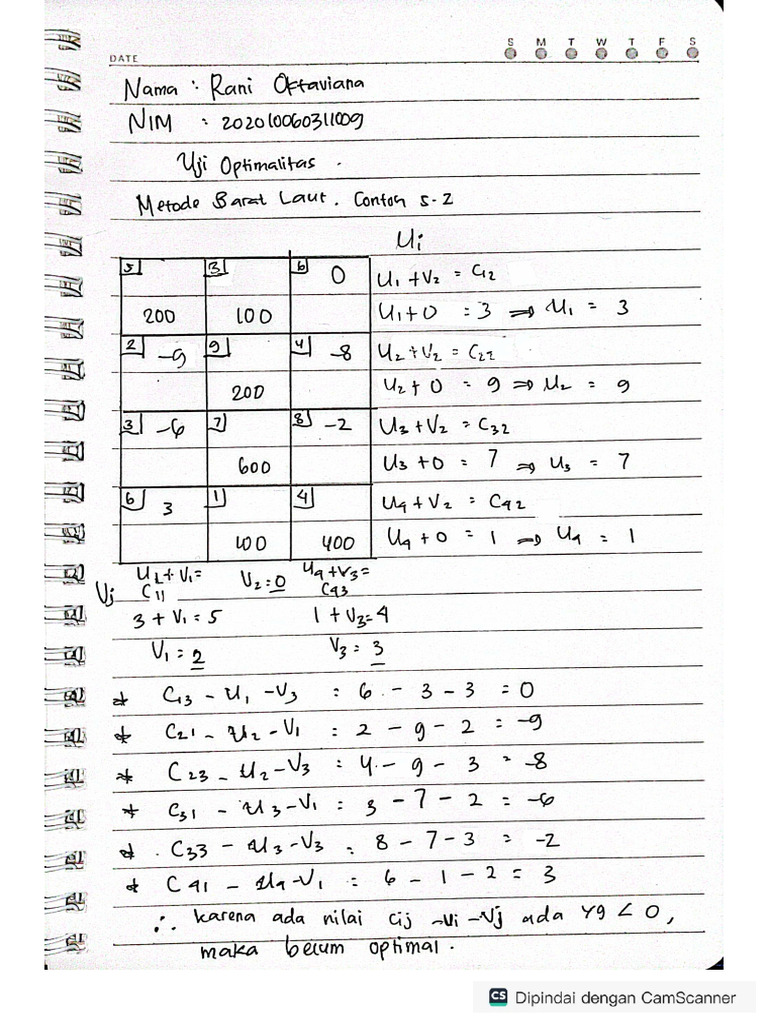 S M T W T F S
DATE
Nama : Rani Oktaviana
NIM : 202010060311009
Uji Optimalitas .
Metode Barat Laut. Contoh 5-2
Ui
5 3 6 0 U1 + V2 = C12
200 100 U1 + 0 = 3 ⇒ U1 = 3
2 -9 9 4 -8 U2 + V2 = C22
200 U2 + 0 = 9 ⇒ U2 = 9
3 -6 7 8 -2 U3 + V2 = C32
600 U3 + 0 = 7 ⇒ U3 = 7
6 3 1 4 U4 + V2 = C42
100 400 U4 + 0 = 1 ⇒ U4 = 1
Vj U1 + V1 = V2 = 0 U4 + V3 =
C11 C43
3 + V1 = 5 1 + V3 = 4
V1 = 2 V3 = 3
* C13 - U1 - V3 : 6 - 3 - 3 = 0
* C21 - U2 - V1 : 2 - 9 - 2 = -9
* C23 - U2 - V3 : 4 - 9 - 3 = -8
* C31 - U3 - V1 : 3 - 7 - 2 = -6
* C33 - U3 - V3 : 8 - 7 - 3 = -2
* C41 - U4 - V1 : 6 - 1 - 2 = 3
∴ karena ada nilai cij -Vi -Vj ada yg < 0,
maka belum optimal .
CS Dipindai dengan CamScanner